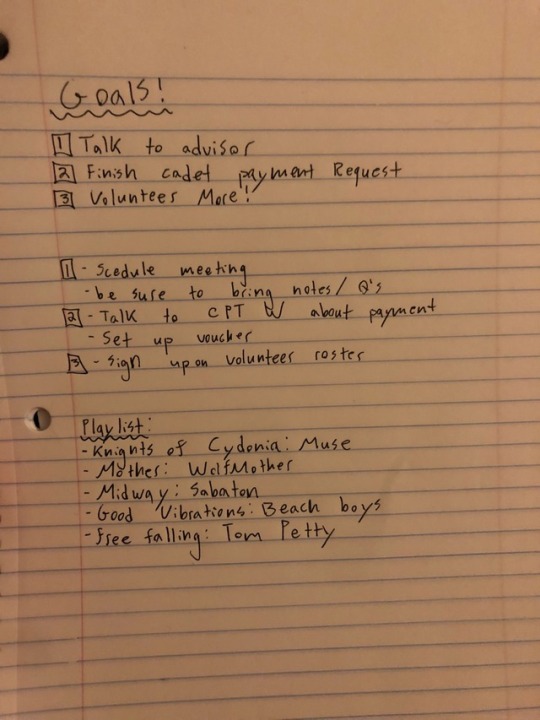 Goals!
1 Talk to advisor
2 Finish cadet payment Request
3 Volunteer More!
1 - Scedule meeting
- be sure to bring notes/ Q's
2 - Talk to CPT W about payment
- Set up voucher
3 - Sign up on volunteer roster
Playlist:
- Knights of Cydonia: Muse
- Mother: WolfMother
- Midway: Sabaton
- Good Vibrations: Beach boys
- free falling: Tom Petty